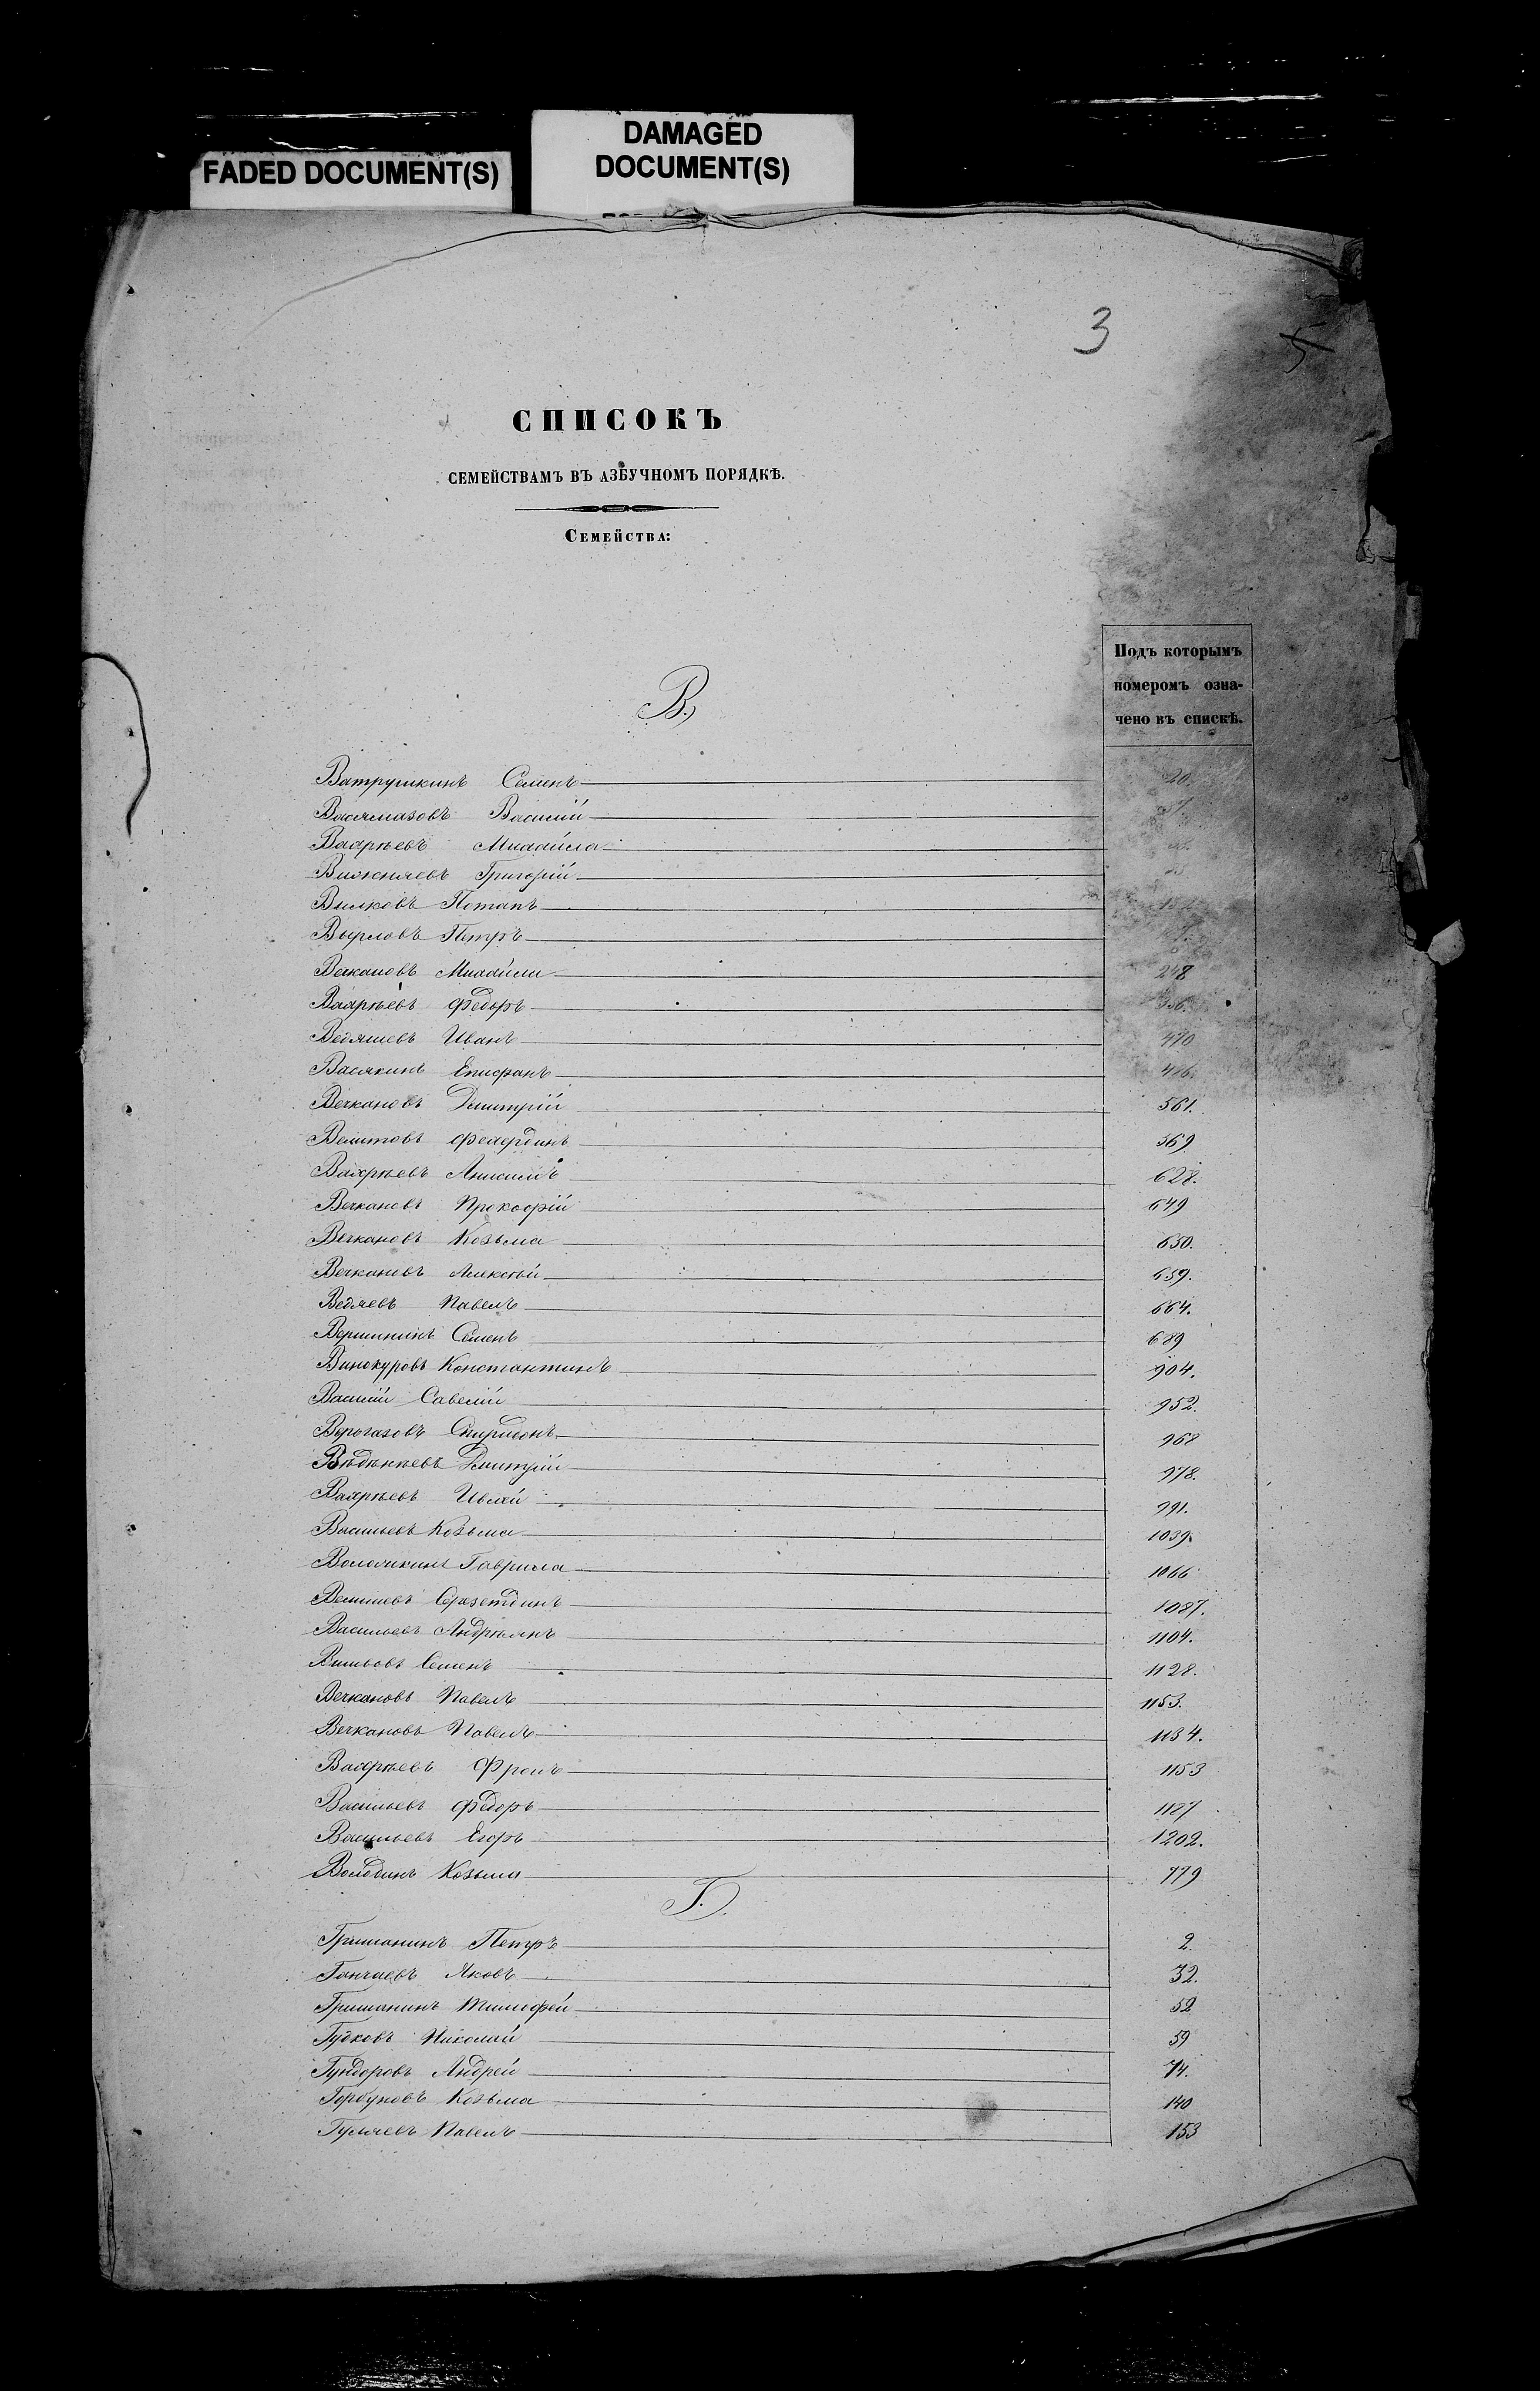 FADED DOCUMENT(S)
DAMAGED
DOCUMENT(S)
3
5
СПИСОКЪ
СЕМЕЙСТВАМЪ ВЪ АЗБУЧНОМЪ ПОРЯДКѢ.
СЕМЕЙСТВА:
Подъ которымъ
номеромъ озна-
чено въ спискѣ.
В.
Ватрушкинъ Семенъ 20.
Василій
Вахрѣевъ Михайла
Григорій
Вилковъ Потапъ
Вырловъ Петръ
Вечкановъ Михайла 248
Вахрѣевъ Федоръ 336.
Ведяшевъ Иванъ 470
Васякинъ Епифанъ 476.
Вечкановъ Дмитрій 561.
569
Вахрѣевъ Анисимъ 628.
Вечкановъ Прокофій 649
Вечкановъ Козьма 650.
Вечкановъ Алексѣй 659.
Ведяевъ Павелъ 664.
Вершининъ Семенъ 689
Винокуровъ Константинъ 904.
Василій Савелій 952.
Спиридонъ 968
Дмитрій 978.
Вахрѣевъ 991.
Васильевъ Козьма 1039.
Гаврила 1066
1087.
Васильевъ Андрѣянъ 1104.
Семенъ 1128.
Вечкановъ Павелъ 1153.
Вечкановъ Павелъ 1134.
Вахрѣевъ Фролъ 1153
Васильевъ Федоръ 1187
Васильевъ Егоръ 1202.
Володинъ Козьма 779
Г.
Гришанинъ Петръ 2.
Ганчаевъ Яковъ 32.
Гришанинъ Тимофей 52
Гудковъ Николай 59
Гундоровъ Андрей 74.
Горбуновъ Козьма 140
Гуляевъ Павелъ 153